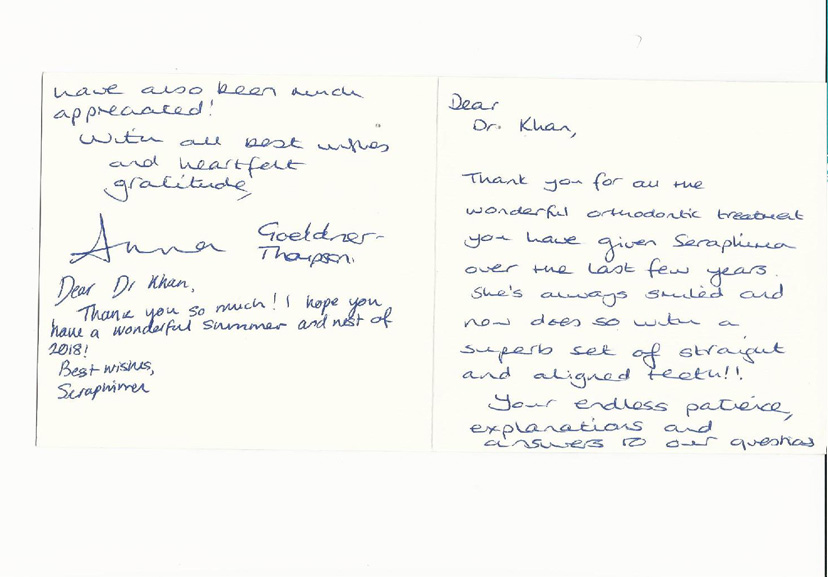 Dear
Dr. Khan,
Thank you for all the
wonderful orthodontic treatment
you have given Seraphima
over the last few years.
She's always smiled and
now does so with a
superb set of straight
and aligned teeth!!
Your endless patience,
explanations and
answers to our questions
have also been much
appreciated!
With all best wishes
and heartfelt
gratitude,
Anna Goeldner-
Thompson.
Dear Dr Khan,
Thank you so much! I hope you
have a wonderful summer and rest of
2018!
Best wishes,
Seraphima